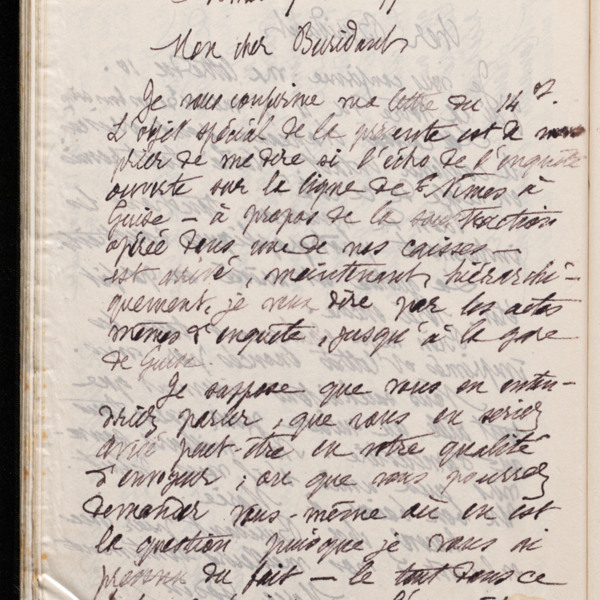 Mon cher Buridant
Je vous confirme ma lettre du 14 ct.
L'objet spécial de la présente est de vous
prier de me dire si l'écho de l'enquête
ouverte sur la ligne de Nîmes à
Guise – à propos de la soustraction
opérée dans une de nos caisses –
est arrivé, maintenant, hiérarchi-
quement, je veux dire par les actes
mêmes d'enquête, jusqu'à la gare
de Guise.
Je suppose que vous en enten-
driez parler, que vous en seriez
avisé peut-être en votre qualité
d'envoyeur ; ou que vous pourriez
demander vous-même où en est
la question puisque je vous ai
prévenu du fait – le tout dans ce